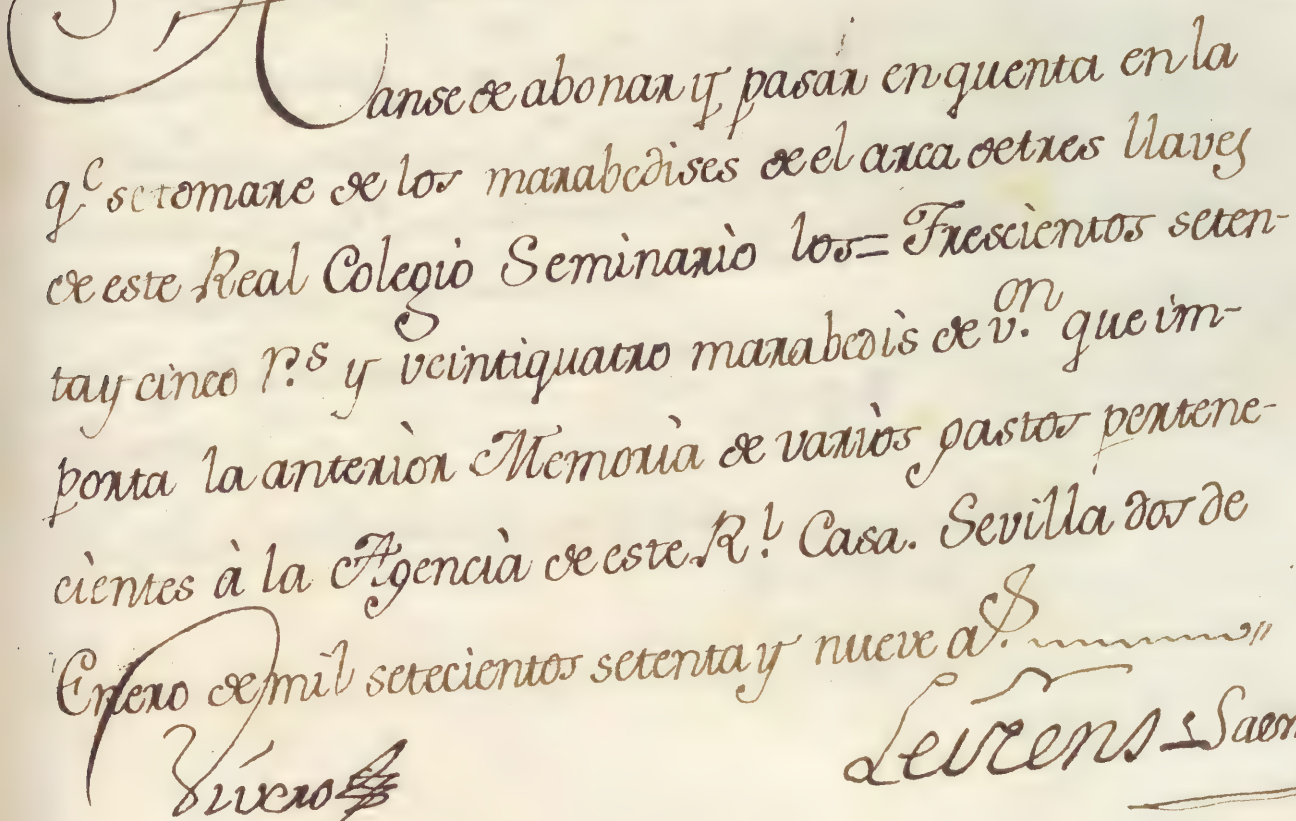 Hanse de abonar y pasar en quenta en la
q.e se tomare de los marabedises de el arca de tres llaves
de este Real Colegiò Seminariò los= Trescientos seten-
ta y cinco r.s y veintiquatro marabedìs de v.on que im-
porta la anteriòr Memorià de variòs gastos pertene-
cientes à la Agencià de este R.l Casa. Sevilla dos de
Enero de mil setecientos setenta y nueve a.s
Rivero